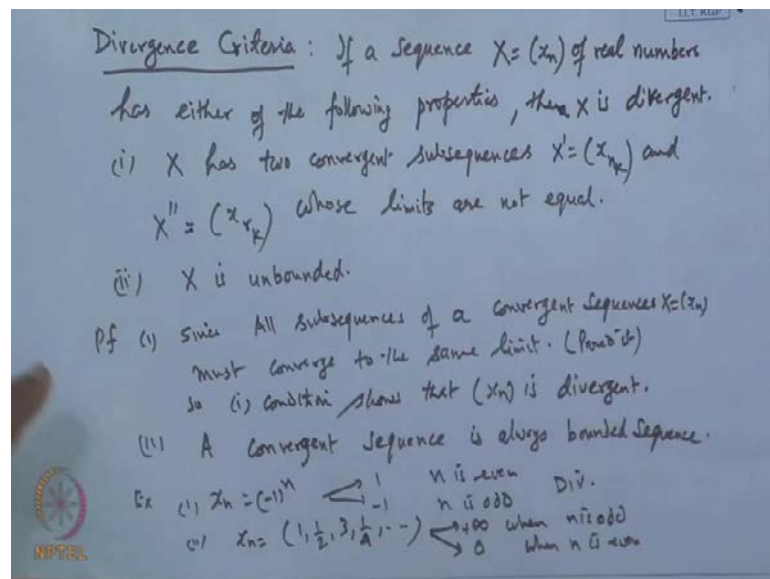 I.I.T. KGP
Divergence Criteria : If a sequence X = (xn) of real numbers
has either of the following properties, then X is divergent.
(i) X has two convergent subsequences X' = (x_{n_k}) and
X'' = (x_{r_k}) whose limits are not equal.
(ii) X is unbounded.
Pf (i) Since All subsequences of a convergent sequences X=(xn)
must converge to the same limit. (Proved it)
so (i) condition shows that (xn) is divergent.
(ii) A convergent sequence is always bounded sequence.
Ex (i) xn = (-1)^n 1 n is even Div.
-1 n is odd
(ii) xn = (1, 1/2, 3, 1/4, --) +∞ when n is odd
0 when n is even
NPTEL